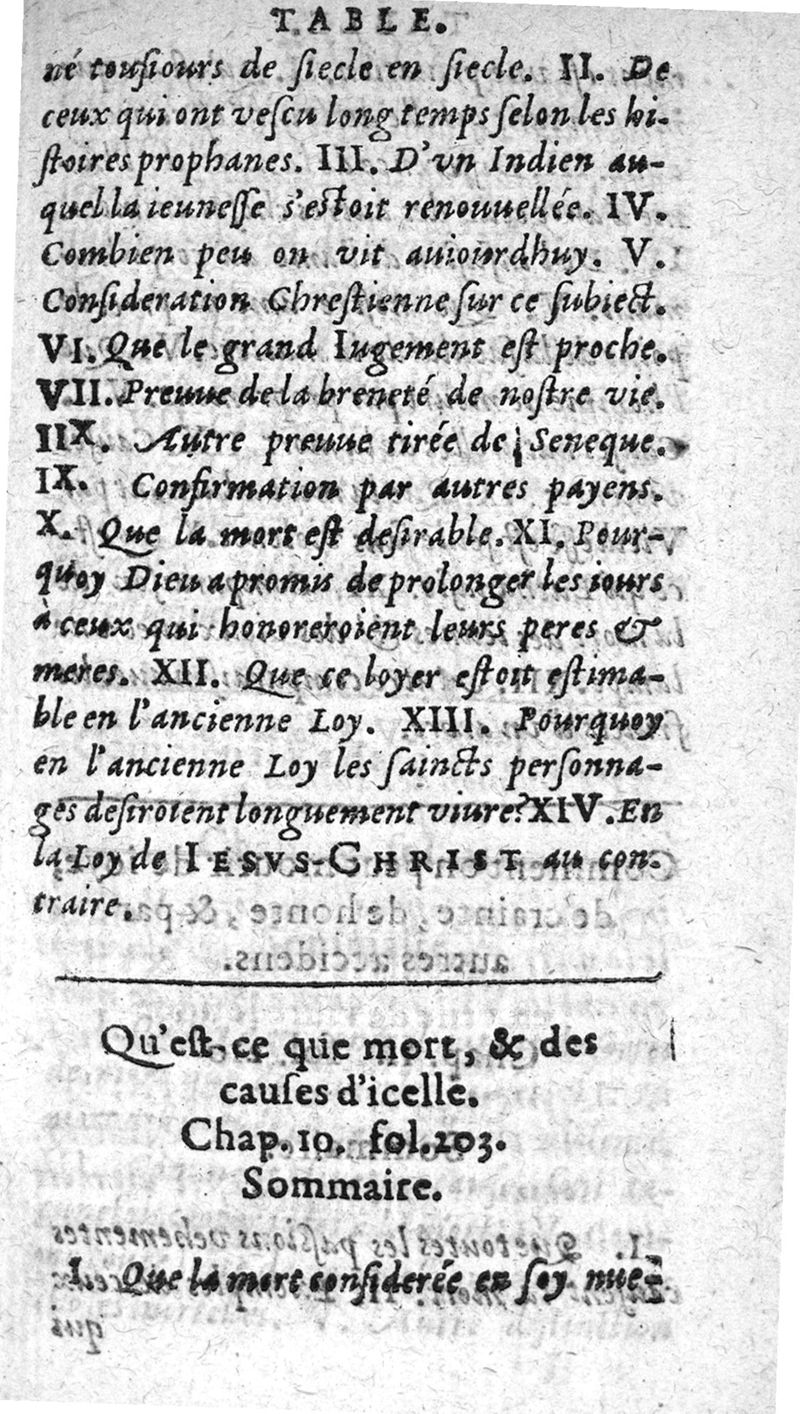 TABLE.
né touſiours de ſiecle en ſiecle. II. De
ceux qui ont veſcu long temps ſelon les hi-
ſtoires prophanes. III. D'vn Indien au-
quel la ieuneſſe s'eſtoit renouuellée. IV.
Combien peu on vit auiourdhuy. V.
Conſideration Chreſtienne ſur ce ſubiect.
VI. Que le grand Iugement eſt proche.
VII. Preuue de la breneté de noſtre vie.
IIX. Autre preuue tirée de Seneque.
IX. Confirmation par autres payens.
X. Que la mort eſt deſirable. XI. Pour-
quoy Dieu a promis de prolonger les iours
à ceux qui honoreroient leurs peres &
meres. XII. Que ce loyer eſtoit eſtima-
ble en l'ancienne Loy. XIII. Pourquoy
en l'ancienne Loy les ſaincts perſonna-
ges deſiroient longuement viure? XIV. En
la Loy de IESVS-CHRIST au con-
traire.
Qu'eſt-ce que mort, & des
cauſes d'icelle.
Chap. 10. fol. 203.
Sommaire.
I. Que la mort conſiderée en ſoy nue-